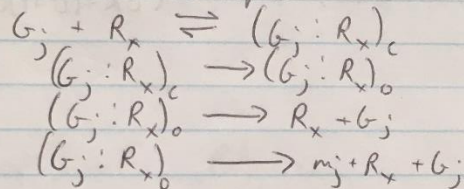 Gj + Rx ⇌ (Gj : Rx)c
(Gj : Rx)c → (Gj : Rx)o
(Gj : Rx)o → Rx + Gj
(Gj : Rx)o → mj + Rx + Gj